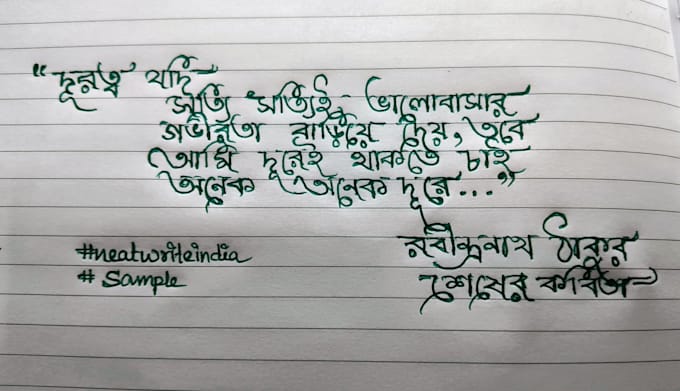 “দূরত্ব যদি
সত্যি সত্যিই ভালোবাসার
গভীরতা বাড়িয়ে দেয়, তবে
আমি দূরেই থাকতে চাই
অনেক অনেক দূরে...”
রবীন্দ্রনাথ ঠাকুর
শেষের কবিতা
#neatwriteindia
# Sample